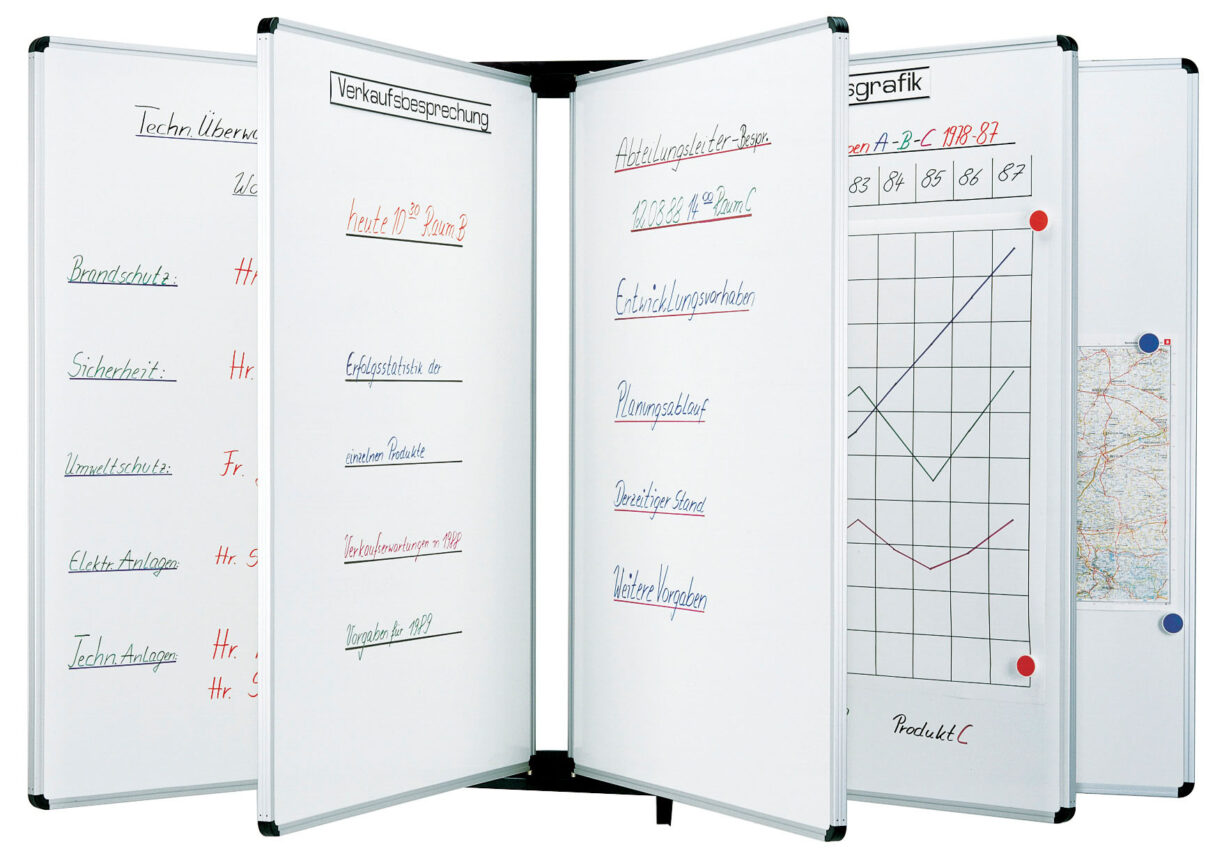 Techn. Überwa
Wo
Brandschutz: Hr
Sicherheit: Hr.
Umweltschutz: Fr.
Elektr. Anlagen: Hr. S
Techn. Anlagen: Hr.
Hr. S
Verkaufsbesprechung
heute 10 30 Raum B
Erfolgsstatistik der
einzelnen Produkte
Verkaufserwartungen n. 1988
Vorgaben für 1989
Abteilungsleiter-Bespr.
12.08.88 14 00 Raum C
Entwicklungsvorhaben
Planungsablauf
Derzeitiger Stand
Weitere Vorgaben
sgrafik
ben A-B-C 1978-87
83 84 85 86 87
Produkt C